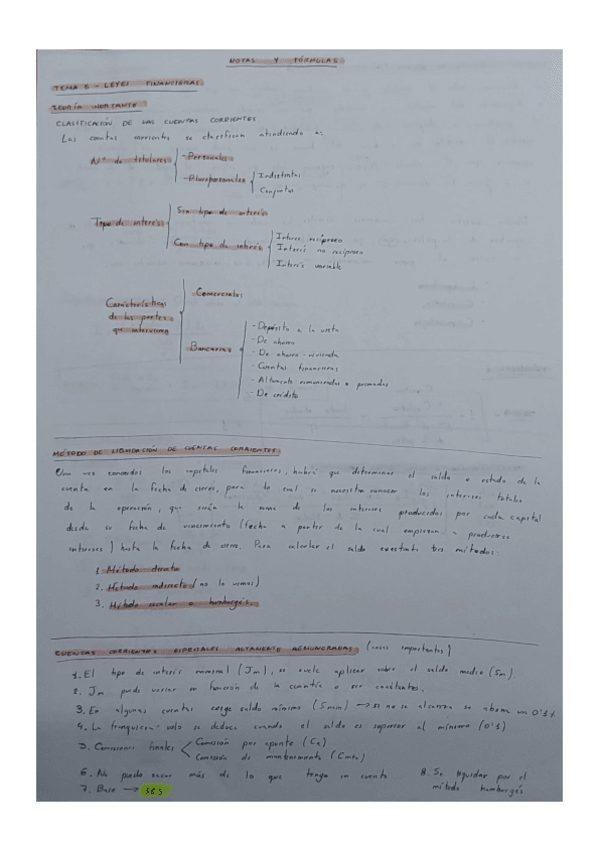 NOTAS Y FÓRMULAS
TEMA 5 - LEYES FINANCIERAS
TEORÍA IMPORTANTE
CLASIFICACIÓN DE LAS CUENTAS CORRIENTES
Las cuentas corrientes se clasifican atendiendo a:
Nº de titulares
- Personales
- Pluripersonales
Indistintas
Conjuntas
Tipo de interés
Sin tipo de interés
Con tipo de interés
Interés recíproco
Interés no recíproco
Interés variable
Características de las partes que intervienen
Comerciales
Bancarias
- Depósito a la vista
- De ahorro
- De ahorro - vivienda
- Cuentas financieras
- Altamente remuneradas o primadas
- De crédito
MÉTODO DE LIQUIDACIÓN DE CUENTAS CORRIENTES
Una vez conocidos los capitales financieros, habrá que determinar el saldo o estado de la
cuenta en la fecha de cierre, para lo cual se necesita conocer los intereses totales
de la operación, que serán la suma de los intereses producidos por cada capital
desde su fecha de vencimiento (fecha a partir de la cual empiezan a producirse
intereses) hasta la fecha de cierre. Para calcular el saldo existen tres métodos:
1. Método directo
2. Método indirecto (no lo vemos)
3. Método escalar o hamburgés.
CUENTAS CORRIENTES ESPECIALES ALTAMENTE REMUNERADAS (cosas importantes)
1. El tipo de interés nominal (Jm), se suele aplicar sobre el saldo medio (Sm).
2. Jm puede variar en función de la cuantía o ser constantes.
3. En algunas cuentas exige saldo mínimo (Smin) → si no se alcanza se abona un 0'1%
4. La franquicia solo se deduce cuando el saldo es superior al mínimo (0'1)
5. Comisiones finales
Comisión por apunte (Ca)
Comisión de mantenimiento (Cmto)
6. No puedo sacar más de lo que tenga en cuenta
7. Base → 365
8. Se liquidan por el
método hamburgés